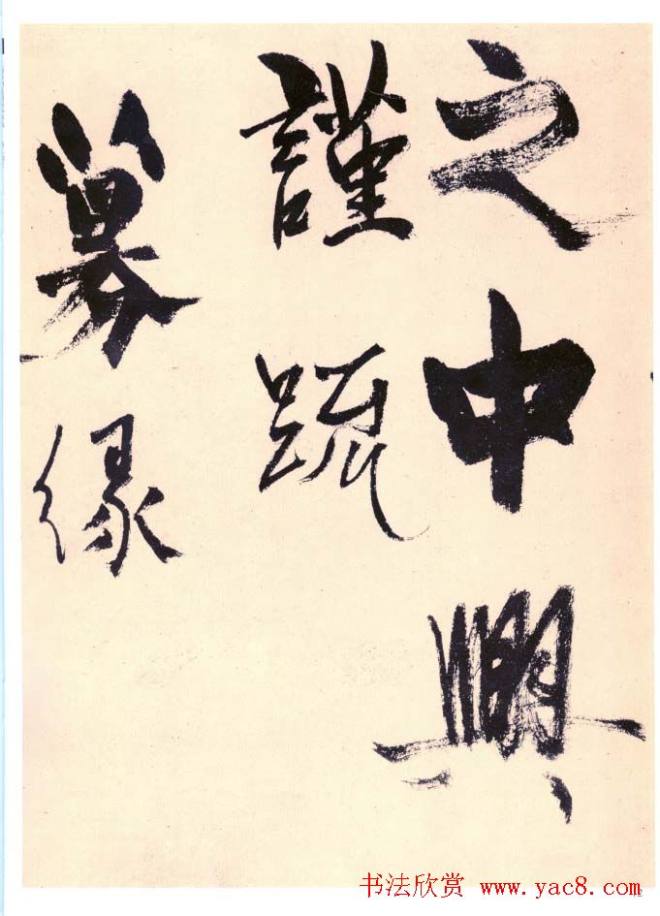 之中興
謹疏
募緣
书法欣赏 www.yac8.com